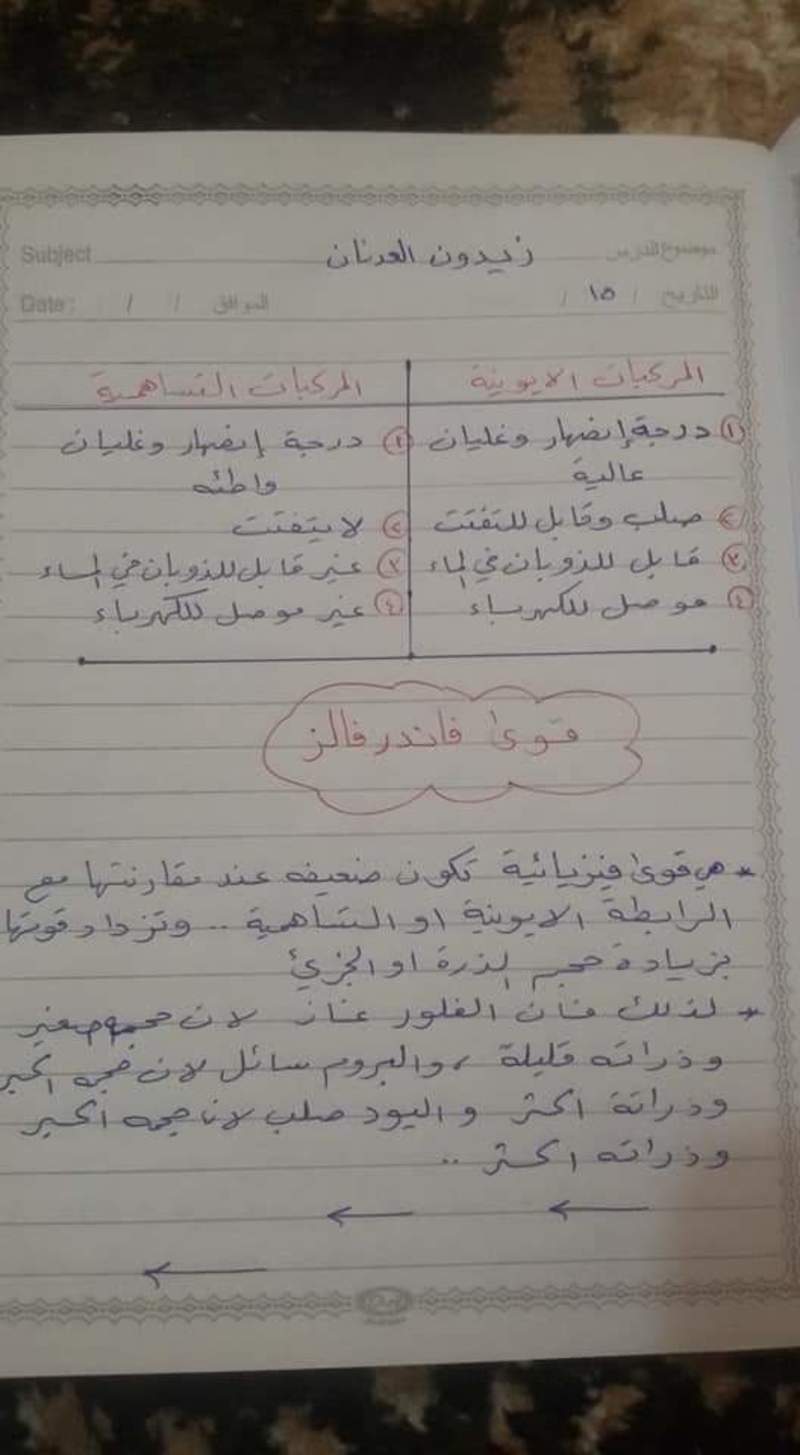 Subject زيدون العدنان موضوع الدرس
Date: / / الموافق / ١٥ / التاريخ
المركبات الايونية
المركبات التساهمية
١ درجة إنصهار وغليان
عالية
٢ صلب وقابل للتفتت
٣ قابل للذوبان في الماء
٤ موصل للكهرباء
١ درجة إنصهار وغليان
واطئه
٢ لا يتفتت
٣ غير قابل للذوبان في الماء
٤ غير موصل للكهرباء
قوى فاندرفالز
* هي قوى فيزيائية تكون ضعيفه عند مقارنتها مع
الرابطة الايونية او التساهمية .. وتزداد قوتها
بزيادة حجم الذرة او الجزيئ
* لذلك فان الفلور غاز لان حجمه صغير
وذراته قليلة ، والبروم سائل لان حجمه اكبر
وذراتة اكثر واليود صلب لان حجمه اكبير
وذراته اكثر ..